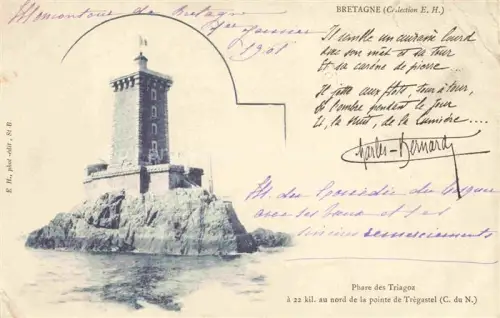 BRETAGNE (Collection E. H.)
de Bretagne
1901
Il semble un cuirassé lourd
avec son mât et sa tour
Et sa carène de pierre...
Il jette aux flots, tour à tour,
de l'ombre pendant le jour
Et, la nuit, de la lumière....
Charles-Bernard
E. H., phot.-édit., St B.
avec ses vœux et ses
sincères remerciements
Phare des Triagoz
à 22 kil. au nord de la pointe de Trégastel (C. du N.)